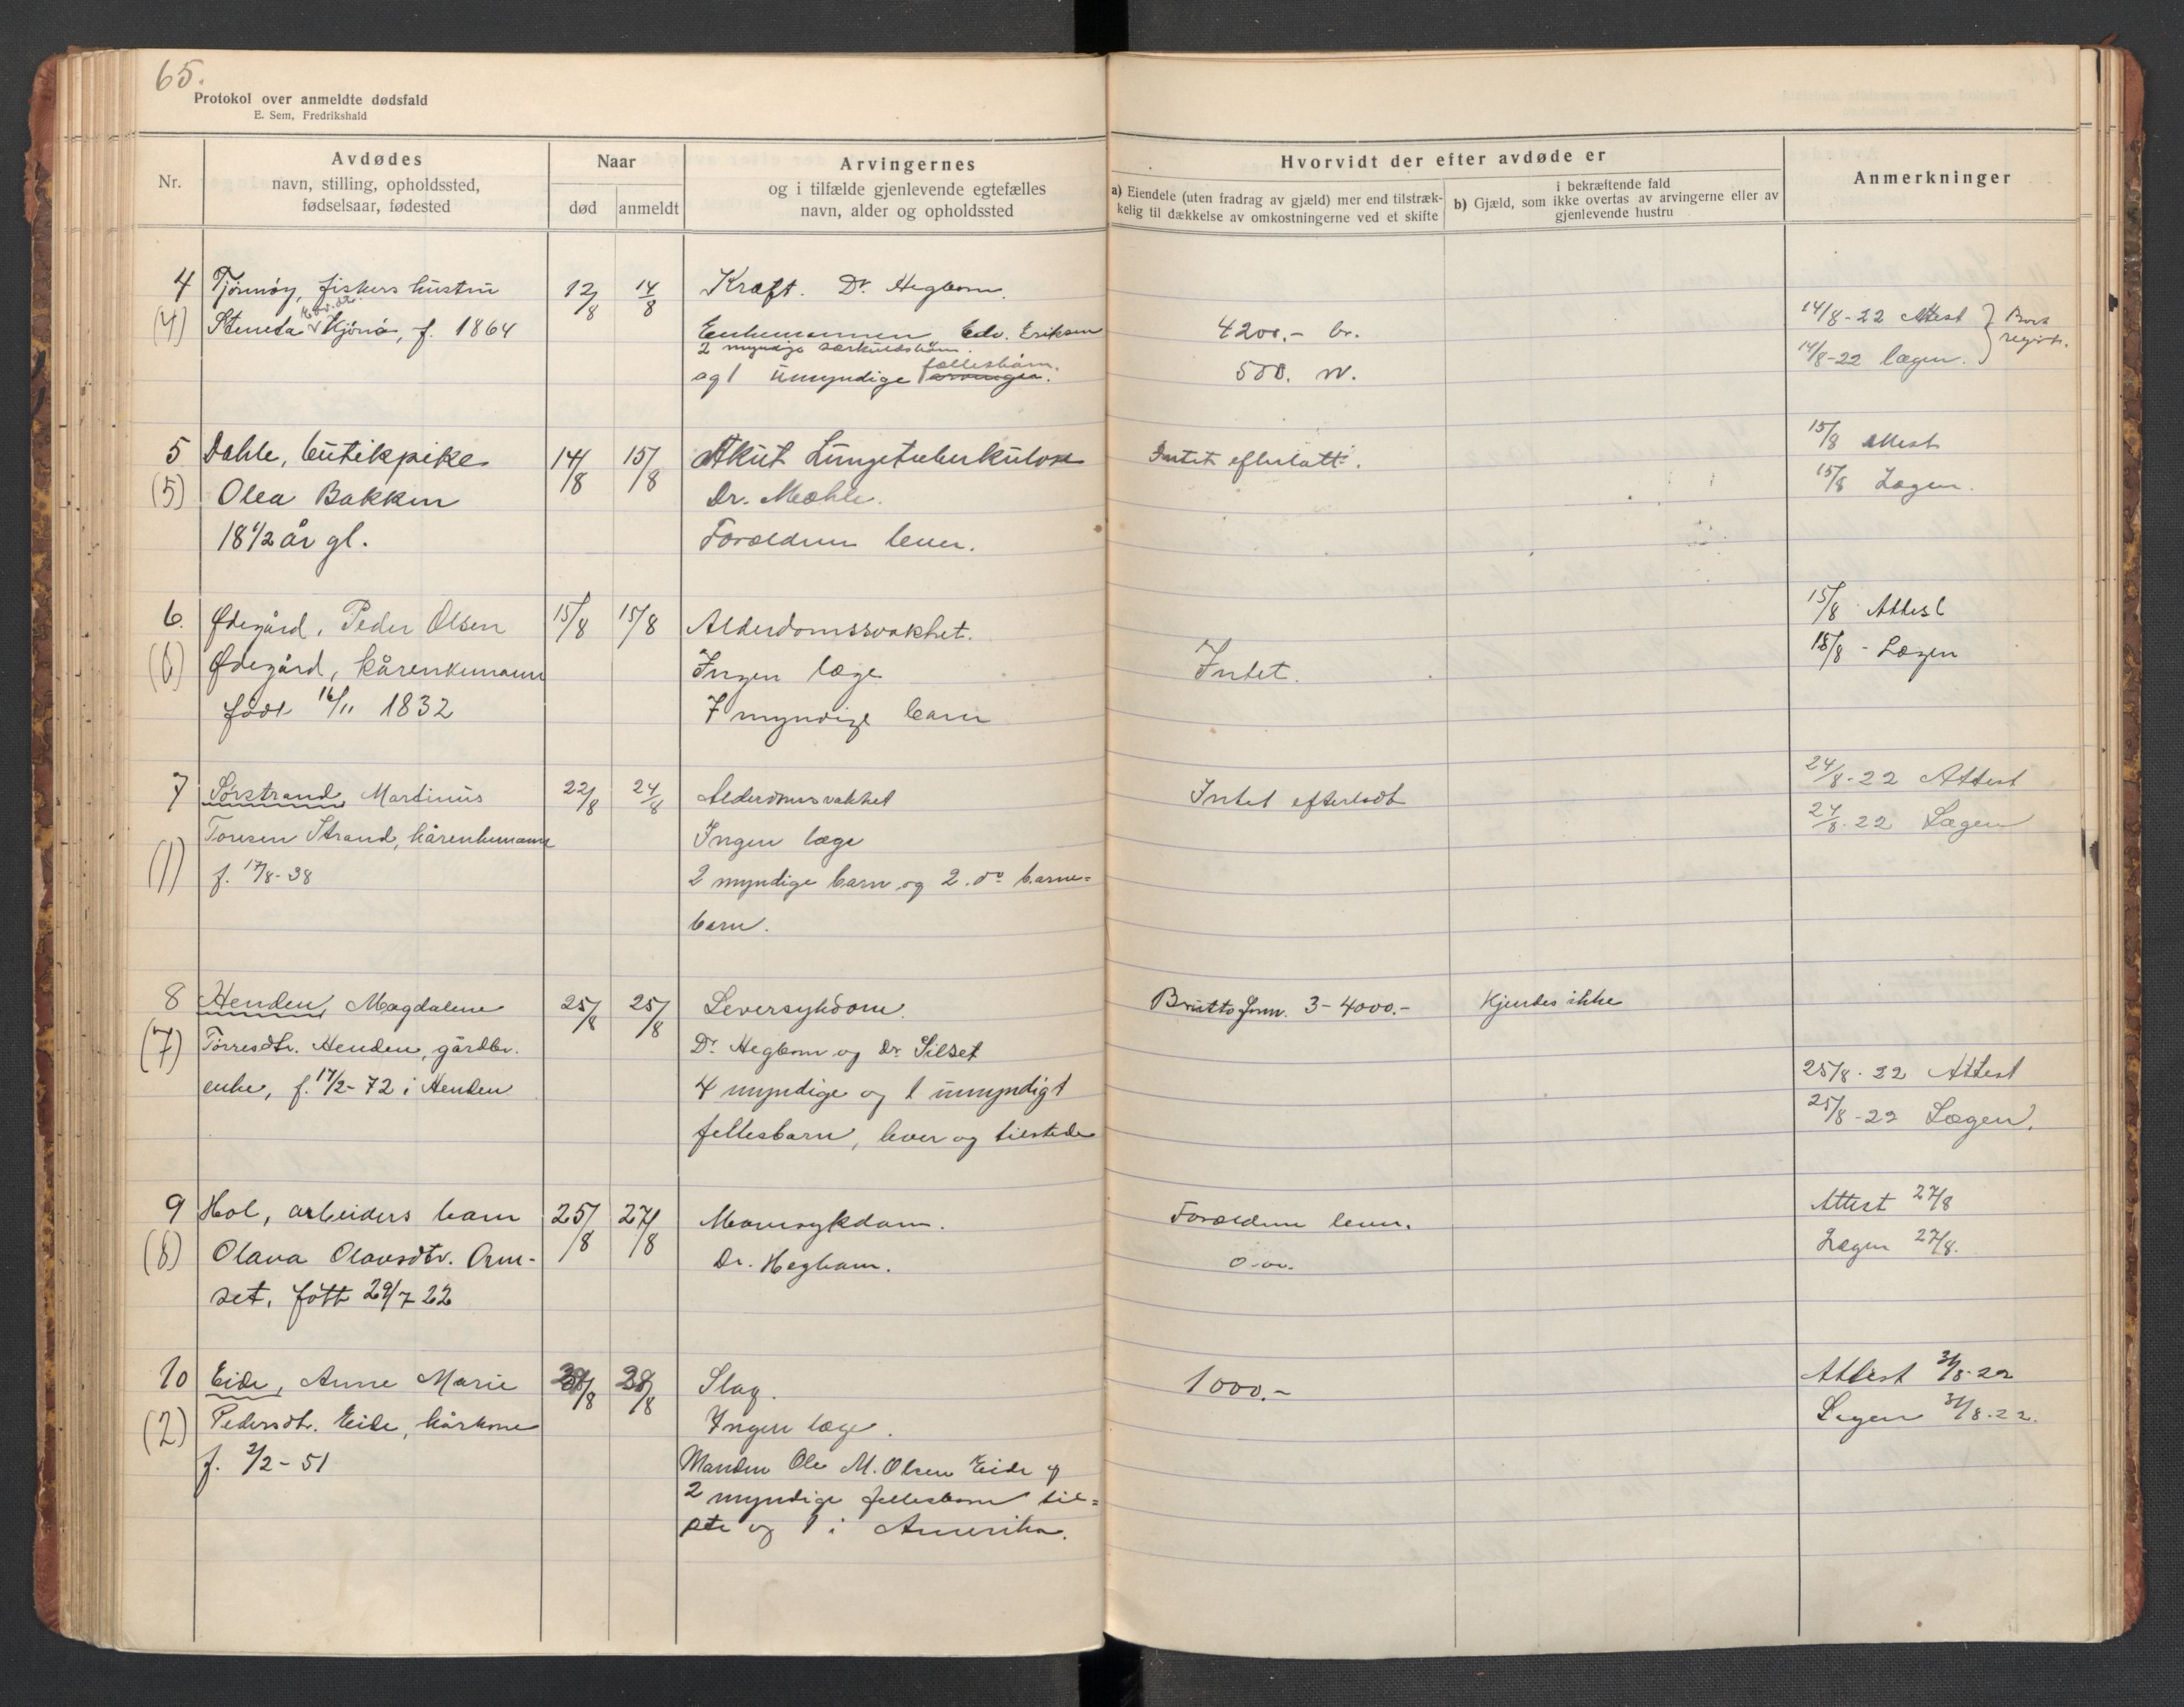 65.
Protokol over anmeldte dødsfald
E. Sem, Fredrikshald
Nr.
Avdødes
navn, stilling, opholdssted,
fødselsaar, fødested
Naar
død
anmeldt
Arvingernes
og i tilfælde gjenlevende egtefælles
navn, alder og opholdssted
Hvorvidt der efter avdøde er
a) Eiendele (uten fradrag av gjæld) mer end tilstræk-
kelig til dækkelse av omkostningerne ved et skifte
i bekræftende fald
b) Gjæld, som ikke overtas av arvingerne eller av
gjenlevende hustru
Anmerkninger
4 Tjørnøy, fiskers hustru 12/8 14/8 Kræft. Dr. Hegbom.
(4) f. 1864 Enkemannen Edv. Eriksen 4200.- br. 14/8-22 Attest
2 myndige særkuldsbårn.
og 1 umyndige fællesbårn. 500. n. 14/8-22 lægen.
5 Dahle, butikpike 14/8 15/8 Akut Lungetuberkulose Intet efterlatt. 15/8 Attest
(5) Olea Bakken Dr. Mæhle. 15/8 Lægen.
18 1/2 år gl. Foreldren lever.
6. Ødegård, Peder Olsen 15/8 15/8 Alderdomssvakhet. 15/8 Attest
(6) Ødegård, kårenkemann Ingen læge Intet. 15/8 - Lægen
född 16/11 1832 7 myndige barn
7 Sørstrand, Martinus 22/8 24/8 Alderdomsvakhet Intet efterladt 24/8-22 Attest
Toresen Strand, kårenkemann Ingen læge 24/8-22 Lægen
(1) f. 17/8-38 2 myndige barn og 2. do barne=
barn.
8 Henden, Magdalene 25/8 25/8 Leversykdom. Brutto form. 3-4000.- Kjendes ikke
(7) Tørresdtr. Henden, gårdbr. Dr. Hegbom og Dr. Silset
enke, f. 17/2-72 i Henden 4 myndige og 1 umyndigt 25/8-22 Attest
fellesbarn, lever og tilstede 25/8-22 Lægen.
9 Hol, arbeiders barn 25/8 27/8 Mavesykdam. Foreldren lever. Attest 27/8
(8) Olava Olavsdtr. Orm- Dr. Hegbom. 0.00. Lægen 27/8.
set. fött 29/7 22
10 Eide, Anne Marie Slag. 1000.- Attest 31/8-22
(2) Pedersdtr. Eide, kårkone Ingen læge. Lægen 31/8-22.
f. 2/2-51 Manden Ole M. Olsen Eide og
2 myndige fellesbarn til=
stede og 1 i Amerika.